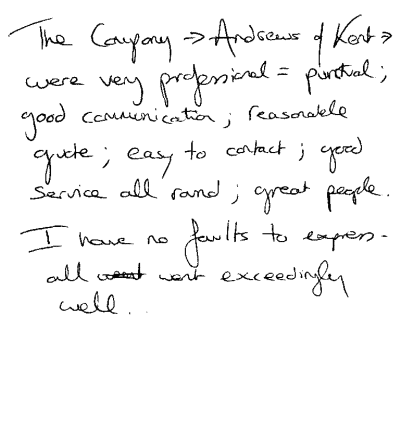 The Company → Andrews of Kent →
were very professional = punctual;
good communication; reasonable
quote; easy to contact; good
service all round; great people.
I have no faults to express -
all went exceedingly
well...